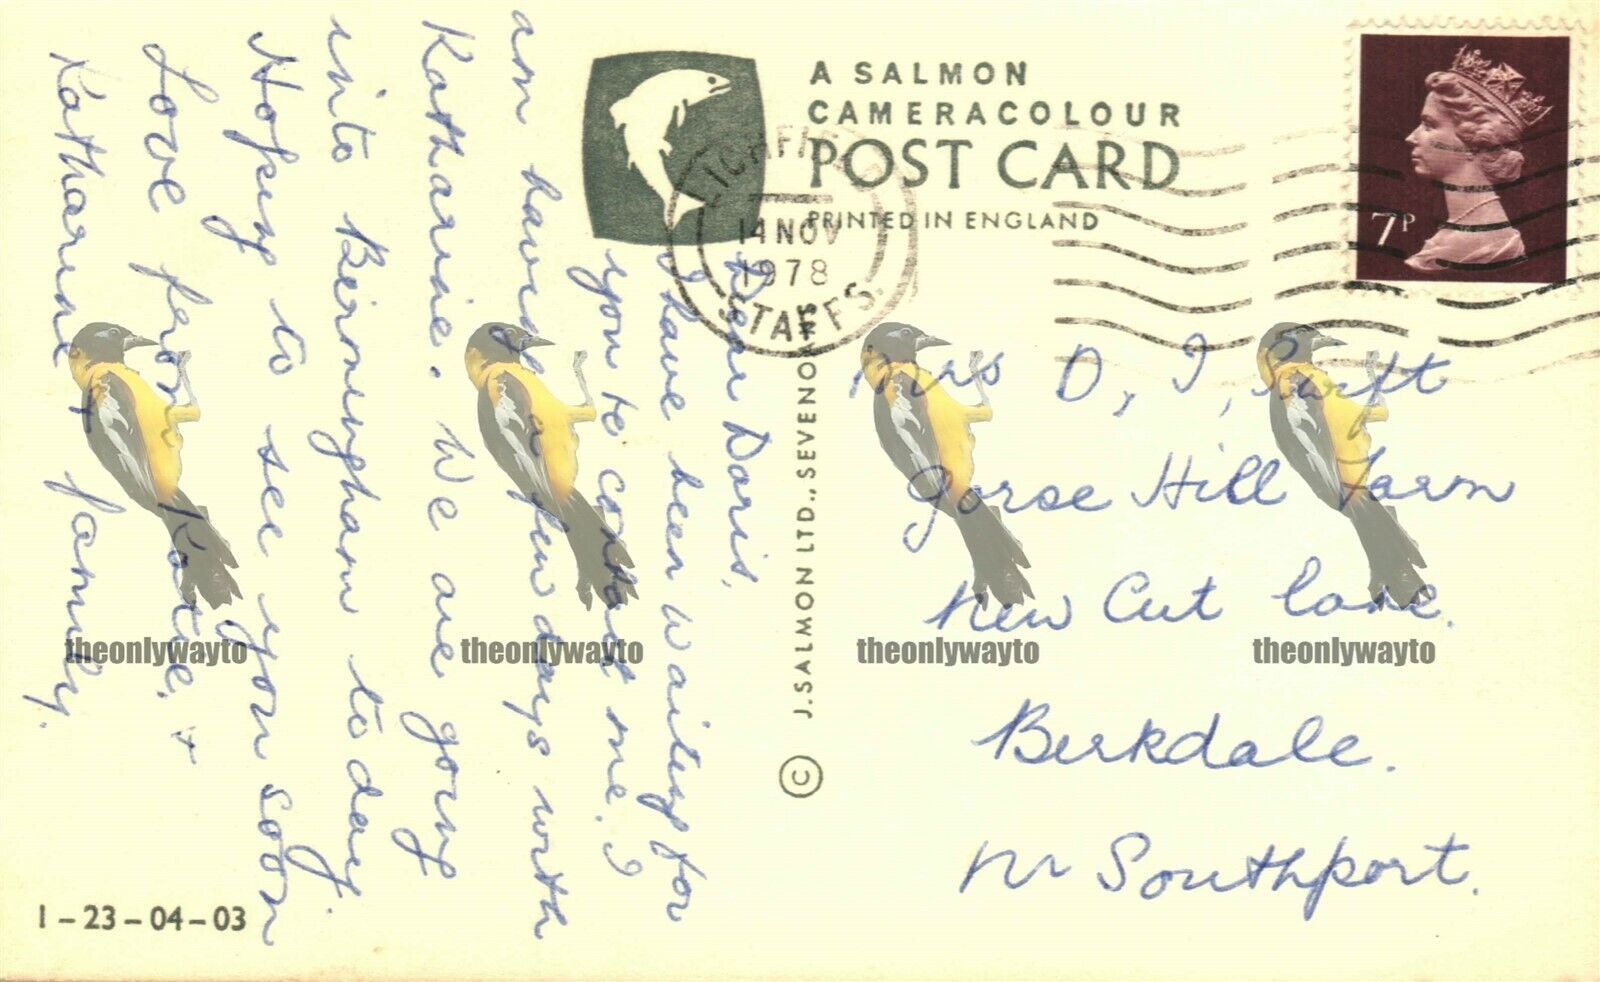 A SALMON
CAMERACOLOUR
POST CARD
PRINTED IN ENGLAND
LICHFIELD
14 NOV
1978
STAFFS.
7P
Dear Doris,
I have been waiting for
you to contact me. I
am having a few days with
Katharine. We are going
into Birmingham to day.
Hoping to see you soon
Love from Katie. +
Katharine + family.
© J. SALMON LTD., SEVENOAKS
Mrs D, I, Swift
Gorse Hill Farm
New Cut Lane.
Birkdale.
Nr Southport.
1-23-04-03
theonlywayto
theonlywayto
theonlywayto
theonlywayto